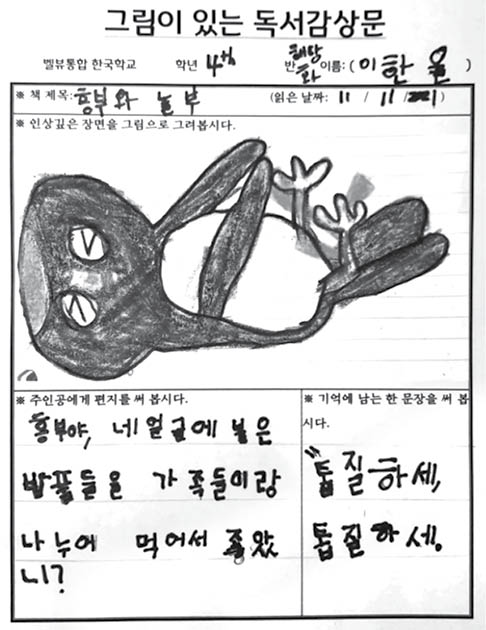 그림이 있는 독서감상문
벨뷰통합 한국학교 학년 4th 반 해당화 이름: ( 이한울 )
※ 책 제목: 흥부와 놀부 (읽은 날짜: 11 / 11 /
※ 인상깊은 장면을 그림으로 그려봅시다.
※ 주인공에게 편지를 써 봅시다.
흥부야, 네 얼굴에 붙은
밥풀들을 가족들이랑
나누어 먹어서 좋았
니?
※ 기억에 남는 한 문장을 써 봅
시다.
"톱질하세,
톱질하세.